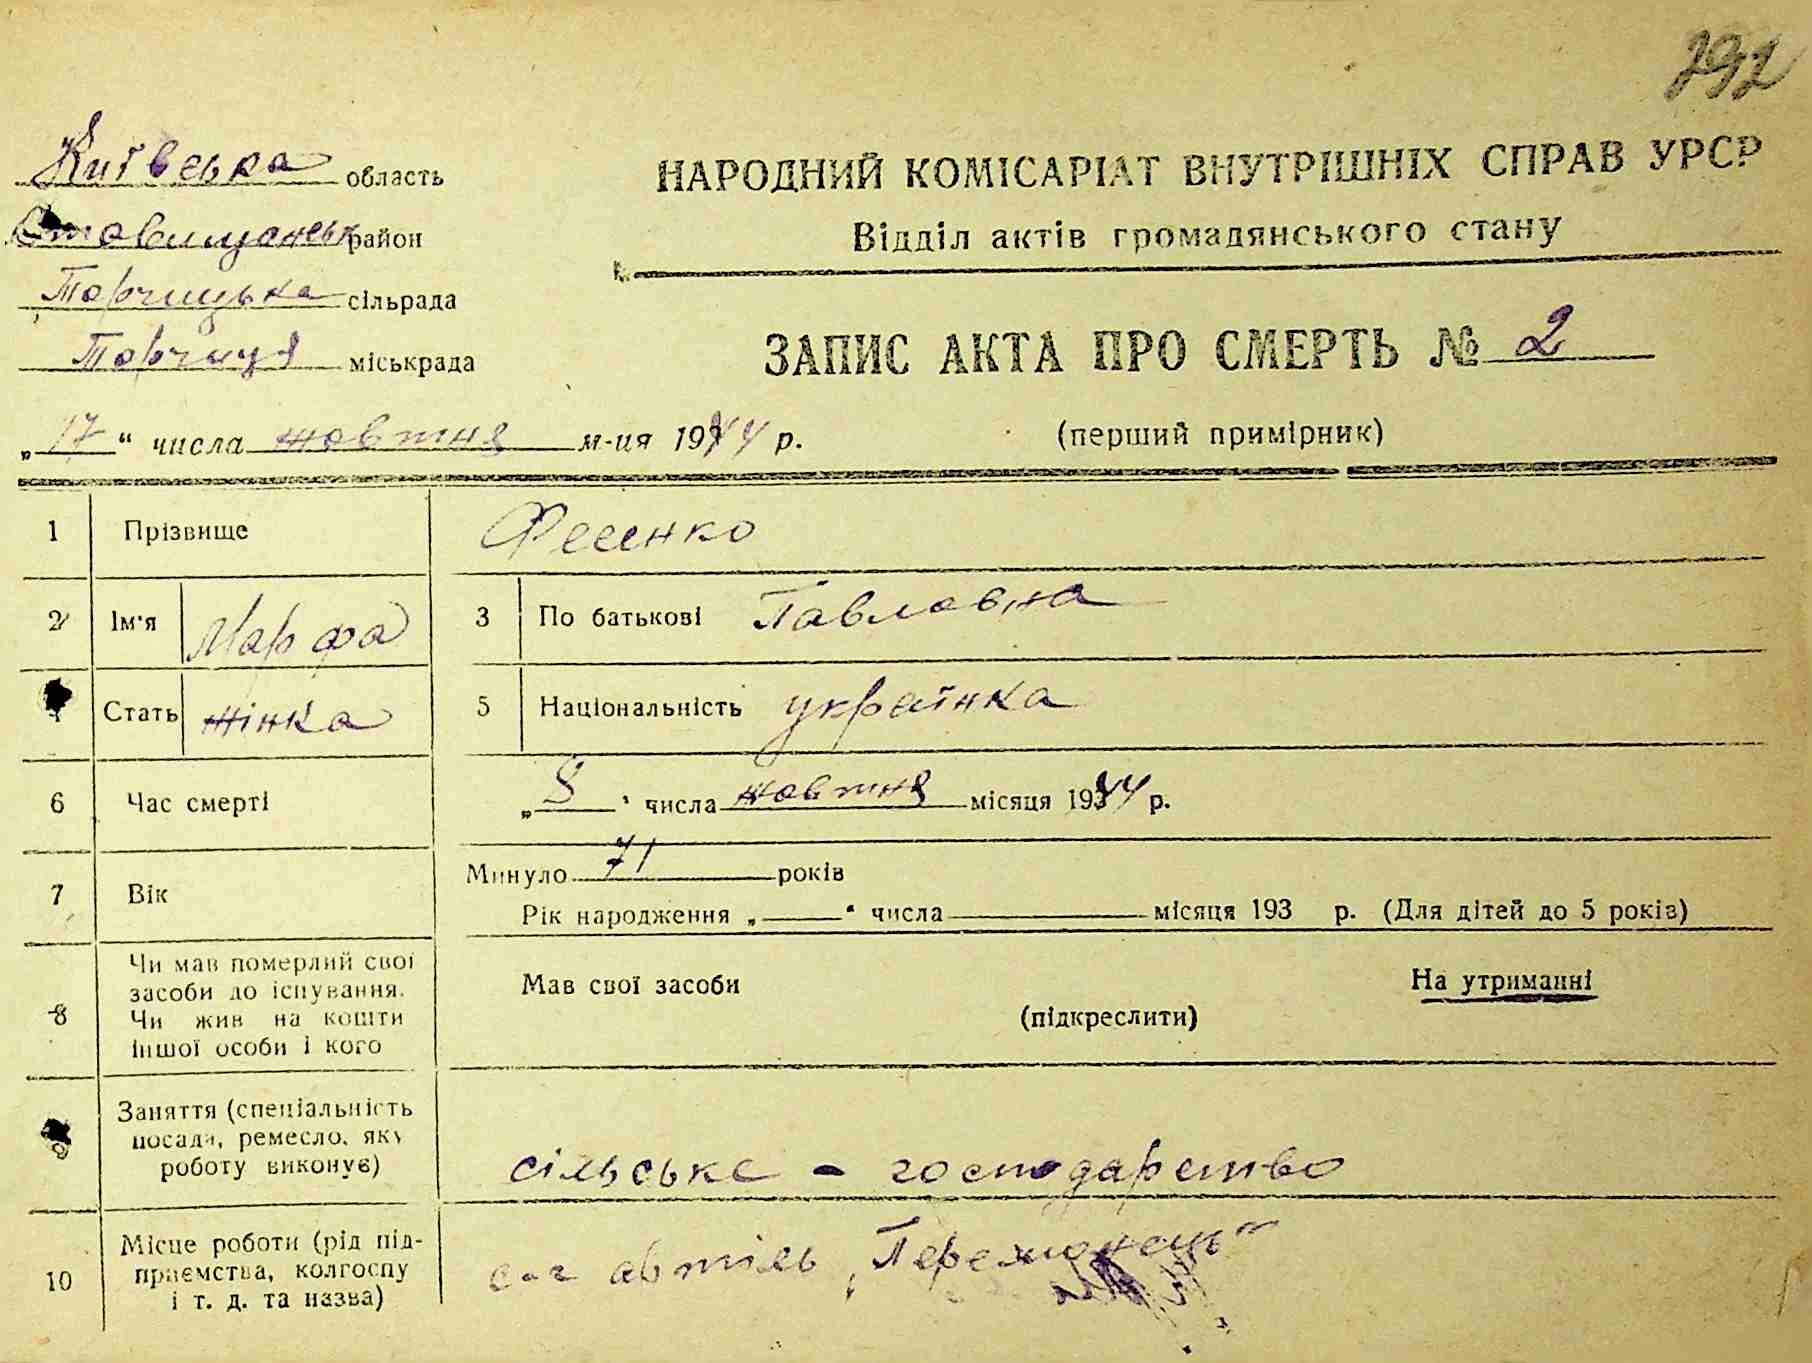 292
Київська область
Ставищанськ район
Торчицька сільрада
Торчиця міськрада
НАРОДНИЙ КОМІСАРІАТ ВНУТРІШНІХ СПРАВ УРСР
Відділ актів громадянського стану
ЗАПИС АКТА ПРО СМЕРТЬ № 2
„17“ числа жовтня м-ця 1944 р.
(перший примірник)
1 Прізвище Фесенко
2 Ім'я Марфа 3 По батькові Павловна
Стать жінка 5 Національність українка
6 Час смерті „8“ числа жовтня місяця 1944 р.
7 Вік Минуло 71 років
Рік народження „ “ числа місяця 193 р. (Для дітей до 5 років)
8 Чи мав померлий свої
засоби до існування.
Чи жив на кошти
іншої особи і кого
Мав свої засоби На утриманні
(підкреслити)
Заняття (спеціальність
посада, ремесло, яку
роботу виконує)
сільське - господарство
10 Місце роботи (рід під-
приємства, колгоспу
і т. д. та назва)
с-г артіль „Переможець“